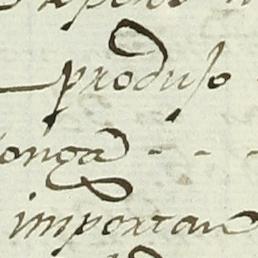 produso
onça - - -
importan